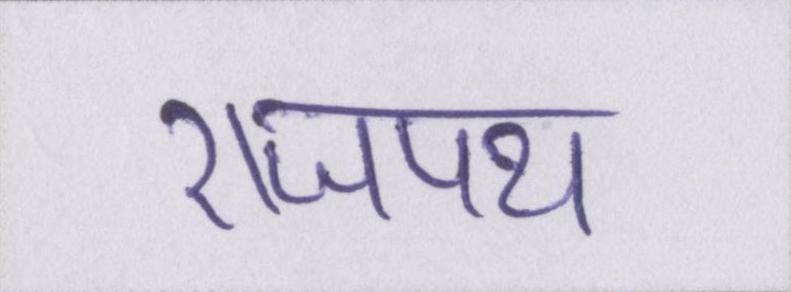 राजपथ